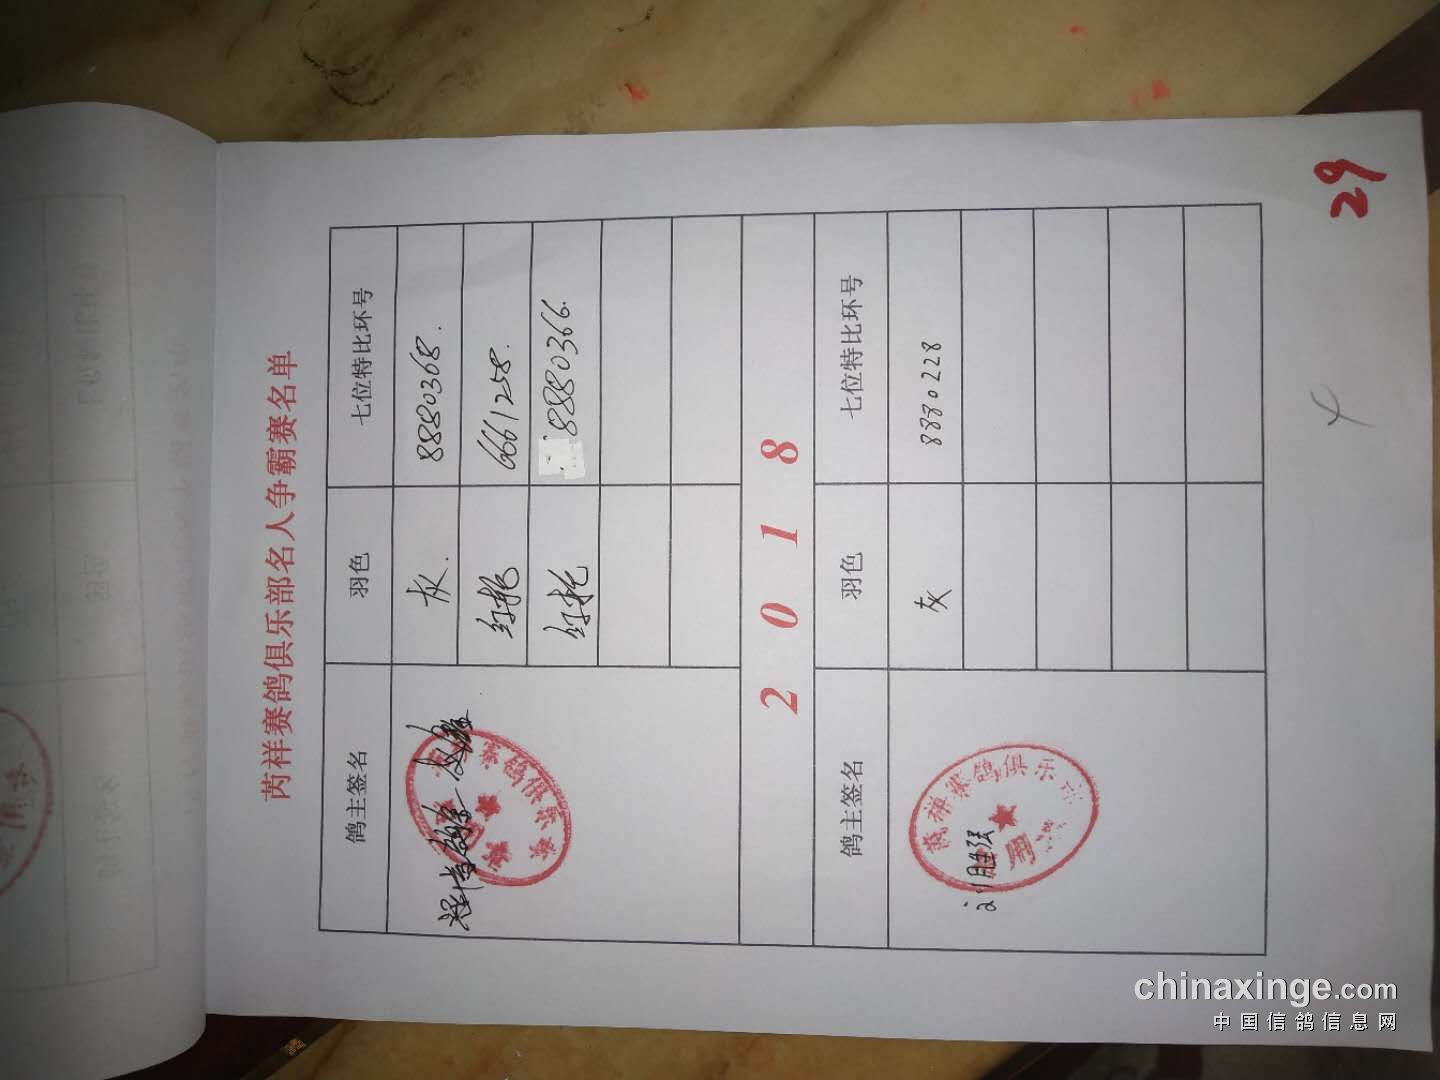 芮祥赛鸽俱乐部名人争霸赛名单
鸽主签名 羽色 七位特比环号
灰. 8880368.
红轮 6661258.
红轮 8880366.
2018
鸽主签名 羽色 七位特比环号
刘胜强 灰 8880228
赛鸽俱乐
祥赛鸽俱乐
29
chinaxinge.com
中国信鸽信息网